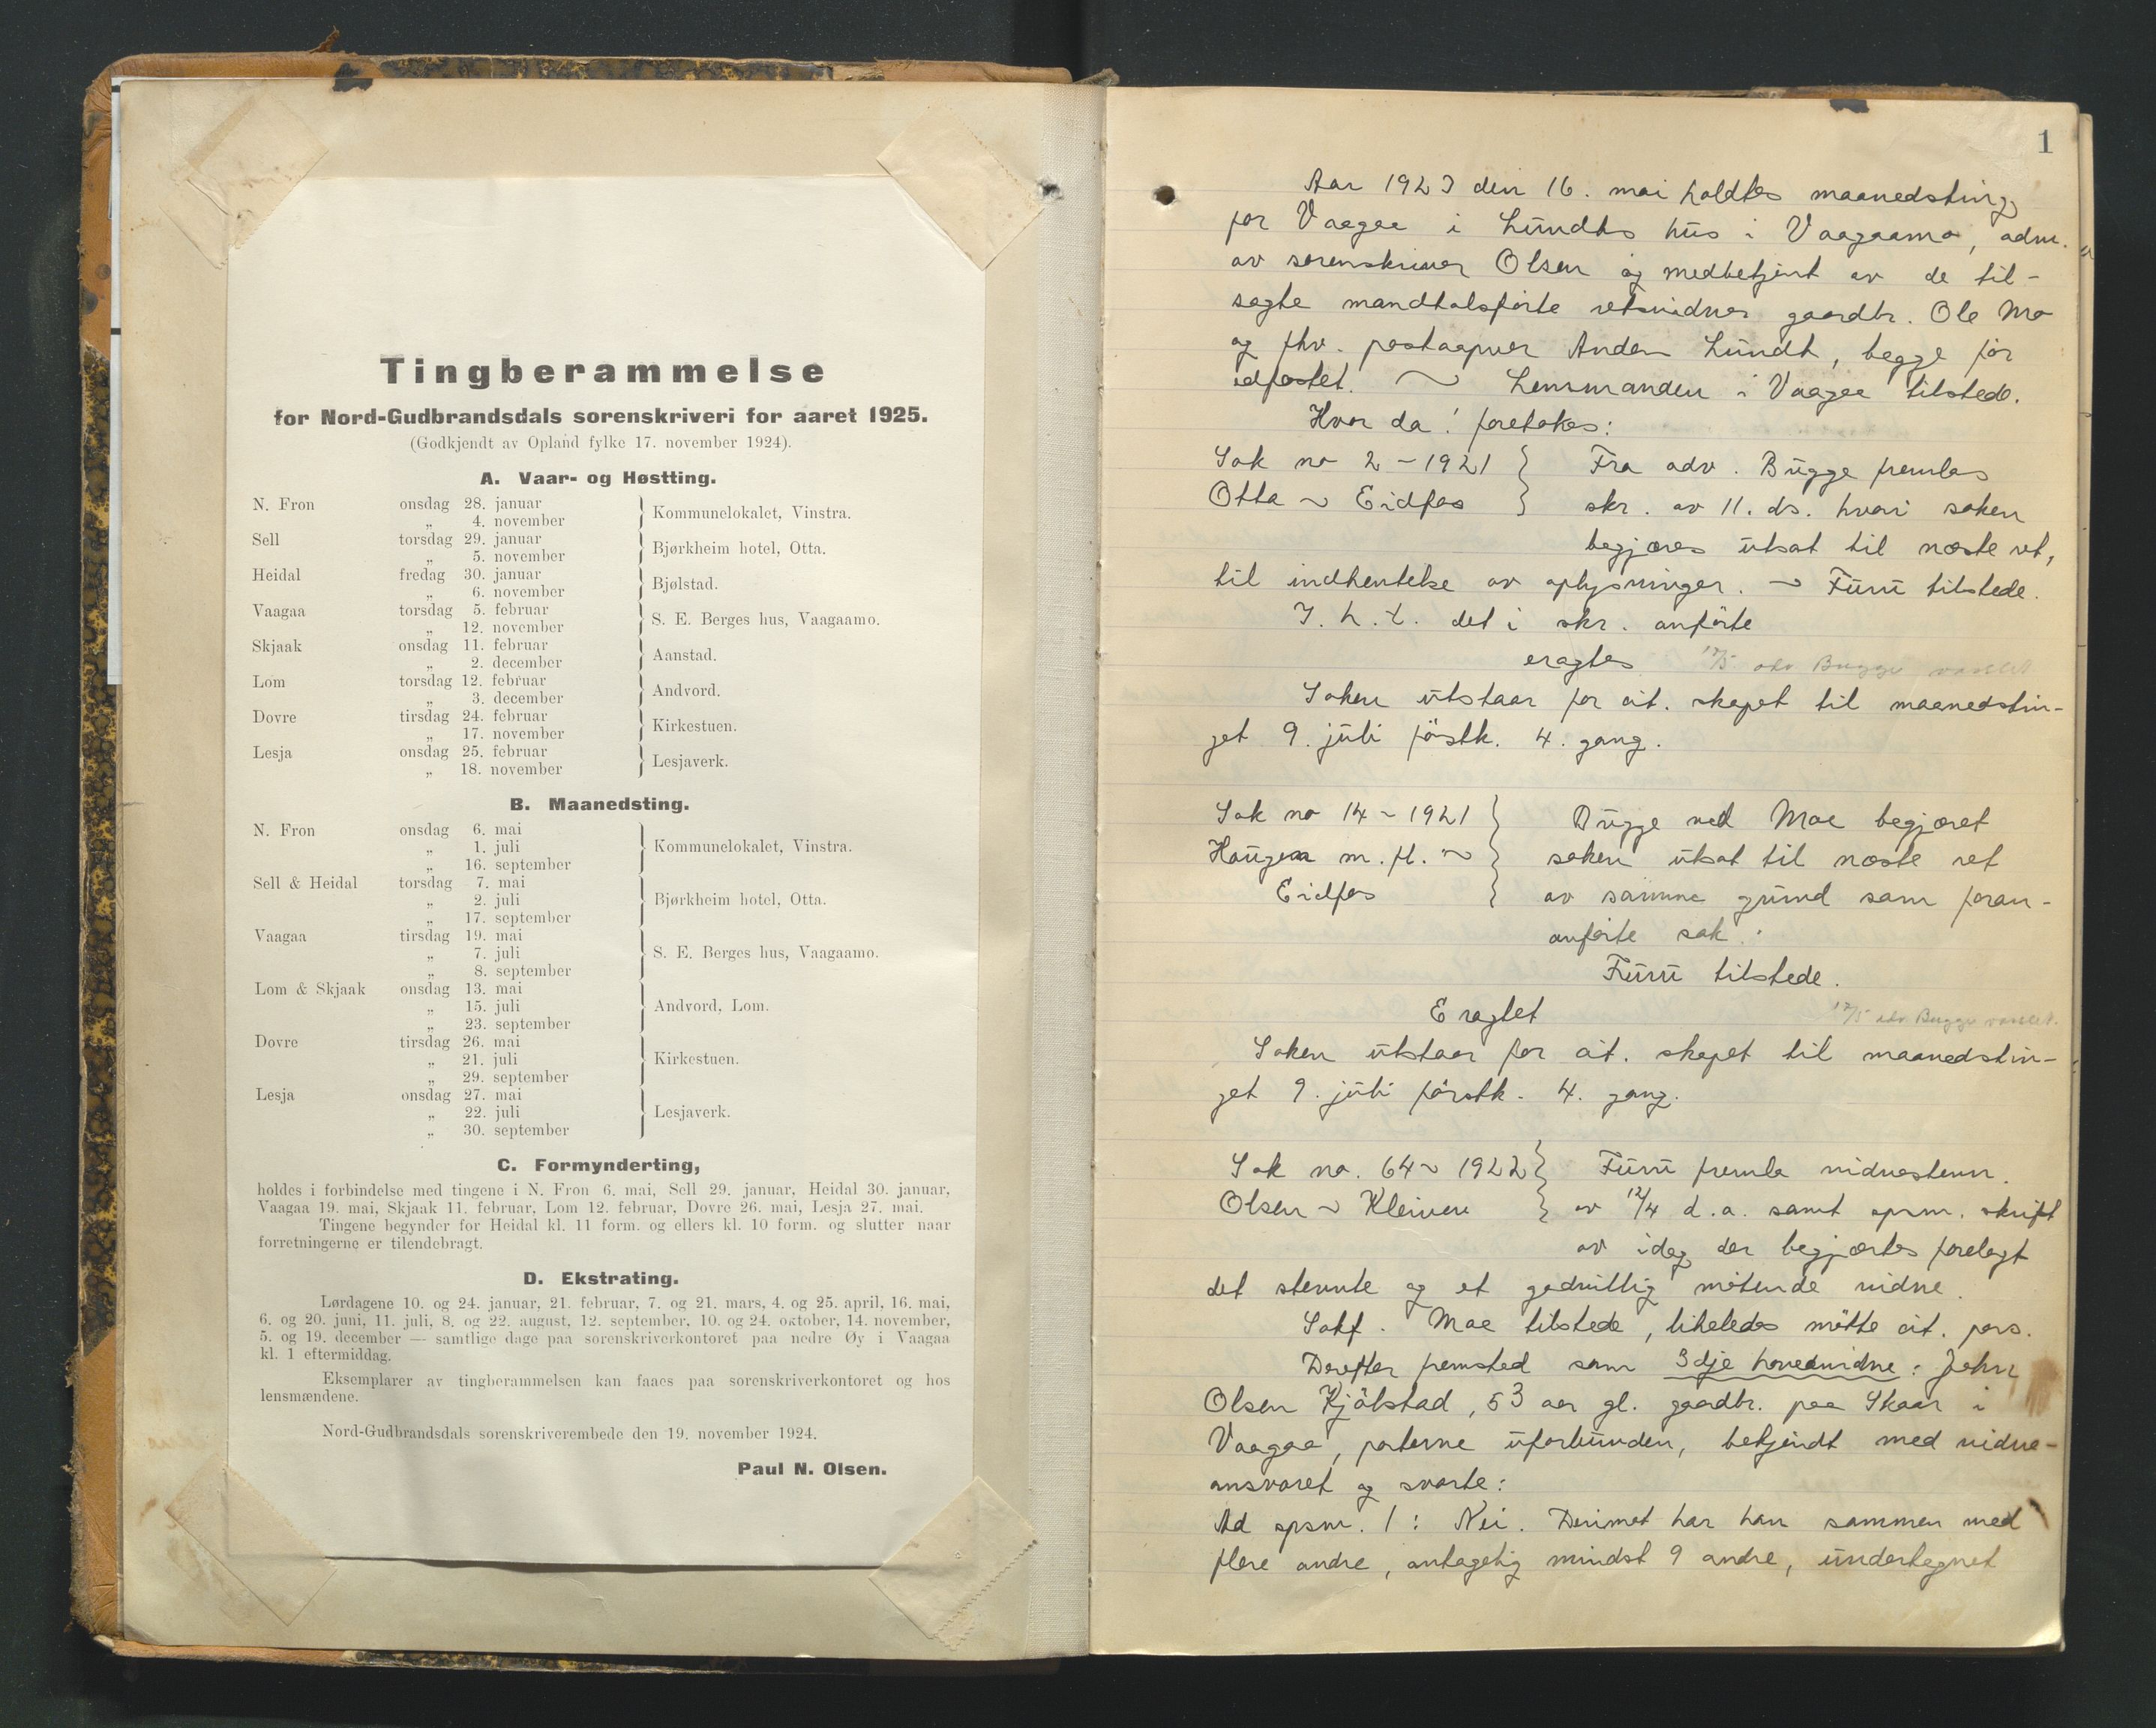 Tingberammelse
for Nord-Gudbrandsdals sorenskriveri for aaret 1925.
(Godkjendt av Opland fylke 17. november 1924).
A. Vaar- og Høstting.
N. Fron onsdag 28. januar
„ 4. november Kommunelokalet, Vinstra.
Sell torsdag 29. januar
„ 5. november Bjørkheim hotel, Otta.
Heidal fredag 30. januar
„ 6. november Bjølstad.
Vaagaa torsdag 5. februar
„ 12. november S. E. Berges hus, Vaagaamo.
Skjaak onsdag 11. februar
„ 2. december Aanstad.
Lom torsdag 12. februar
„ 3. december Andvord.
Dovre tirsdag 24. februar
„ 17. november Kirkestuen.
Lesja onsdag 25. februar
„ 18. november Lesjaverk.
B. Maanedsting.
N. Fron onsdag 6. mai
„ 1. juli Kommunelokalet, Vinstra.
„ 16. september
Sell & Heidal torsdag 7. mai
„ 2. juli Bjørkheim hotel, Otta.
„ 17. september
Vaagaa tirsdag 19. mai
„ 7. juli S. E. Berges hus, Vaagaamo.
„ 8. september
Lom & Skjaak onsdag 13. mai
„ 15. juli Andvord, Lom.
„ 23. september
Dovre tirsdag 26. mai
„ 21. juli Kirkestuen.
„ 29. september
Lesja onsdag 27. mai
„ 22. juli Lesjaverk.
„ 30. september
C. Formynderting,
holdes i forbindelse med tingene i N. Fron 6. mai, Sell 29. januar, Heidal 30. januar,
Vaagaa 19. mai, Skjaak 11. februar, Lom 12. februar, Dovre 26. mai, Lesja 27. mai.
Tingene begynder for Heidal kl. 11 form. og ellers kl. 10 form. og slutter naar
forretningerne er tilendebragt.
D. Ekstrating.
Lørdagene 10. og 24. januar, 21. februar, 7. og 21. mars, 4. og 25. april, 16. mai,
6. og 20. juni, 11. juli, 8. og 22. august, 12. september, 10. og 24. oktober, 14. november,
5. og 19. december — samtlige dage paa sorenskriverkontoret paa nedre Øy i Vaagaa
kl. 1 eftermiddag.
Eksemplarer av tingberammelsen kan faaes paa sorenskriverkontoret og hos
lensmændene.
Nord-Gudbrandsdals sorenskriverembede den 19. november 1924.
Paul N. Olsen.
1
Aar 1923 den 16. mai holdtes maanedsting
for Vaagaa i Lundts hus i Vaagaamo, adm.
av sorenskriver Olsen og medbetjent av de til-
sagte mandtalsførte retsvidner gaardbr. Ole Mo
og fhv. postaapner Anders Lundt, begge før
edfæstet. ~ Lensmanden i Vaagaa tilstede.
Hvor da! foretokes:
Sak no 2 - 1921 Fra adv. Bugge fremlas
Otta ~ Eidfos skr. av 11. ds. hvori saken
begjæres utsat til næste ret,
til indhentelse av oplysninger. ~ Furu tilstede.
I. h. t. det i skr. anførte
eragtes 17/5 adv Bugge varslet
Saken utstaar for cit. skapet til maanedstin-
get 9. juli førstk. 4. gang.
Sak no 14 ~ 1921 Bugge ved Moe begjæret
Haugen m. fl. ~ saken utsat til næste ret
Eidfos av samme grund som foran-
anførte sak.
Furu tilstede.
Eragtet 17/5 adv. Bugge varslet.
Saken utstaar for cit. skapet til maanedstin-
get 9. juli førstk. 4. gang.
Sak no. 64 ~ 1922 Furu fremla vidnestevn.
Olsen ~ Kleiven av 12/4 d.a. samt spsm. skrift
av idag der begjærtes forelagt
det stevnte og et godvillig møtende vidne.
Sakf. Moe tilstede, likeledes møtte cit. pers.
Derefter fremsted som 3dje hovedvidne: John
Olsen Kjølstad, 53 aar gl. gaardbr. paa Skaar i
Vaagaa, parterne uforbunden, bekjendt med vidne-
ansvaret og svarte:
Ad spsm. 1: Nei. Derimot har han sammen med
flere andre, antagelig mindst 9 andre, undertegnet